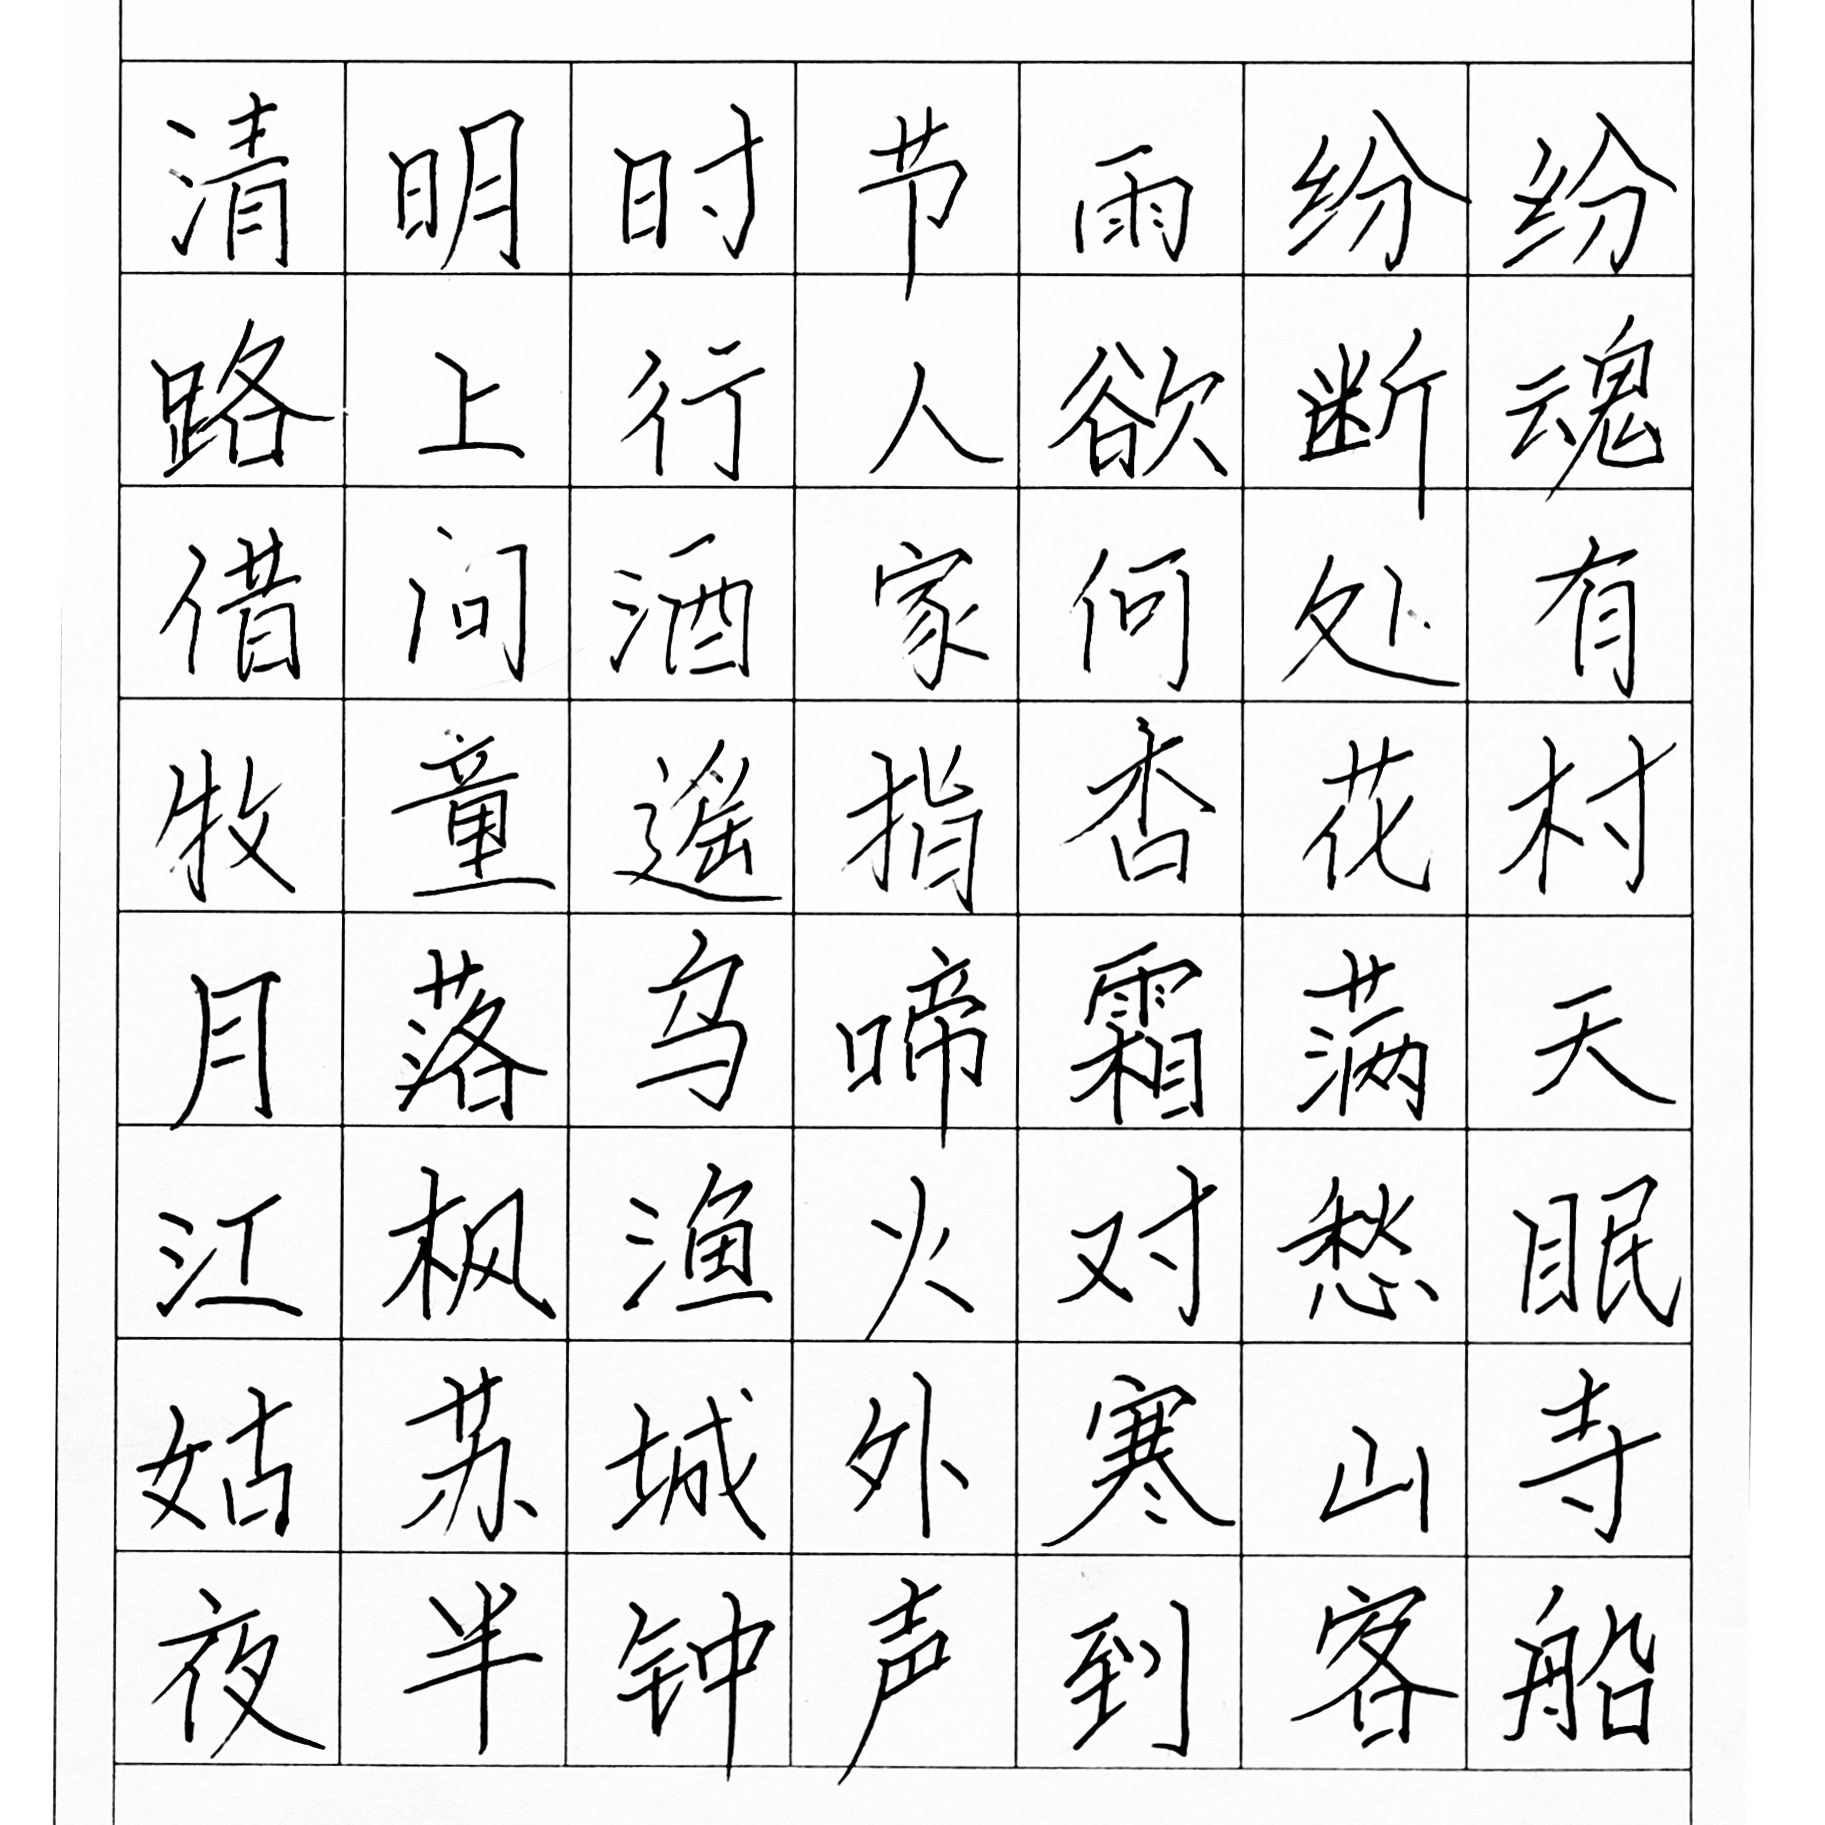 清明时节雨纷纷
路上行人欲断魂
借问酒家何处有
牧童遥指杏花村
月落乌啼霜满天
江枫渔火对愁眠
姑苏城外寒山寺
夜半钟声到客船